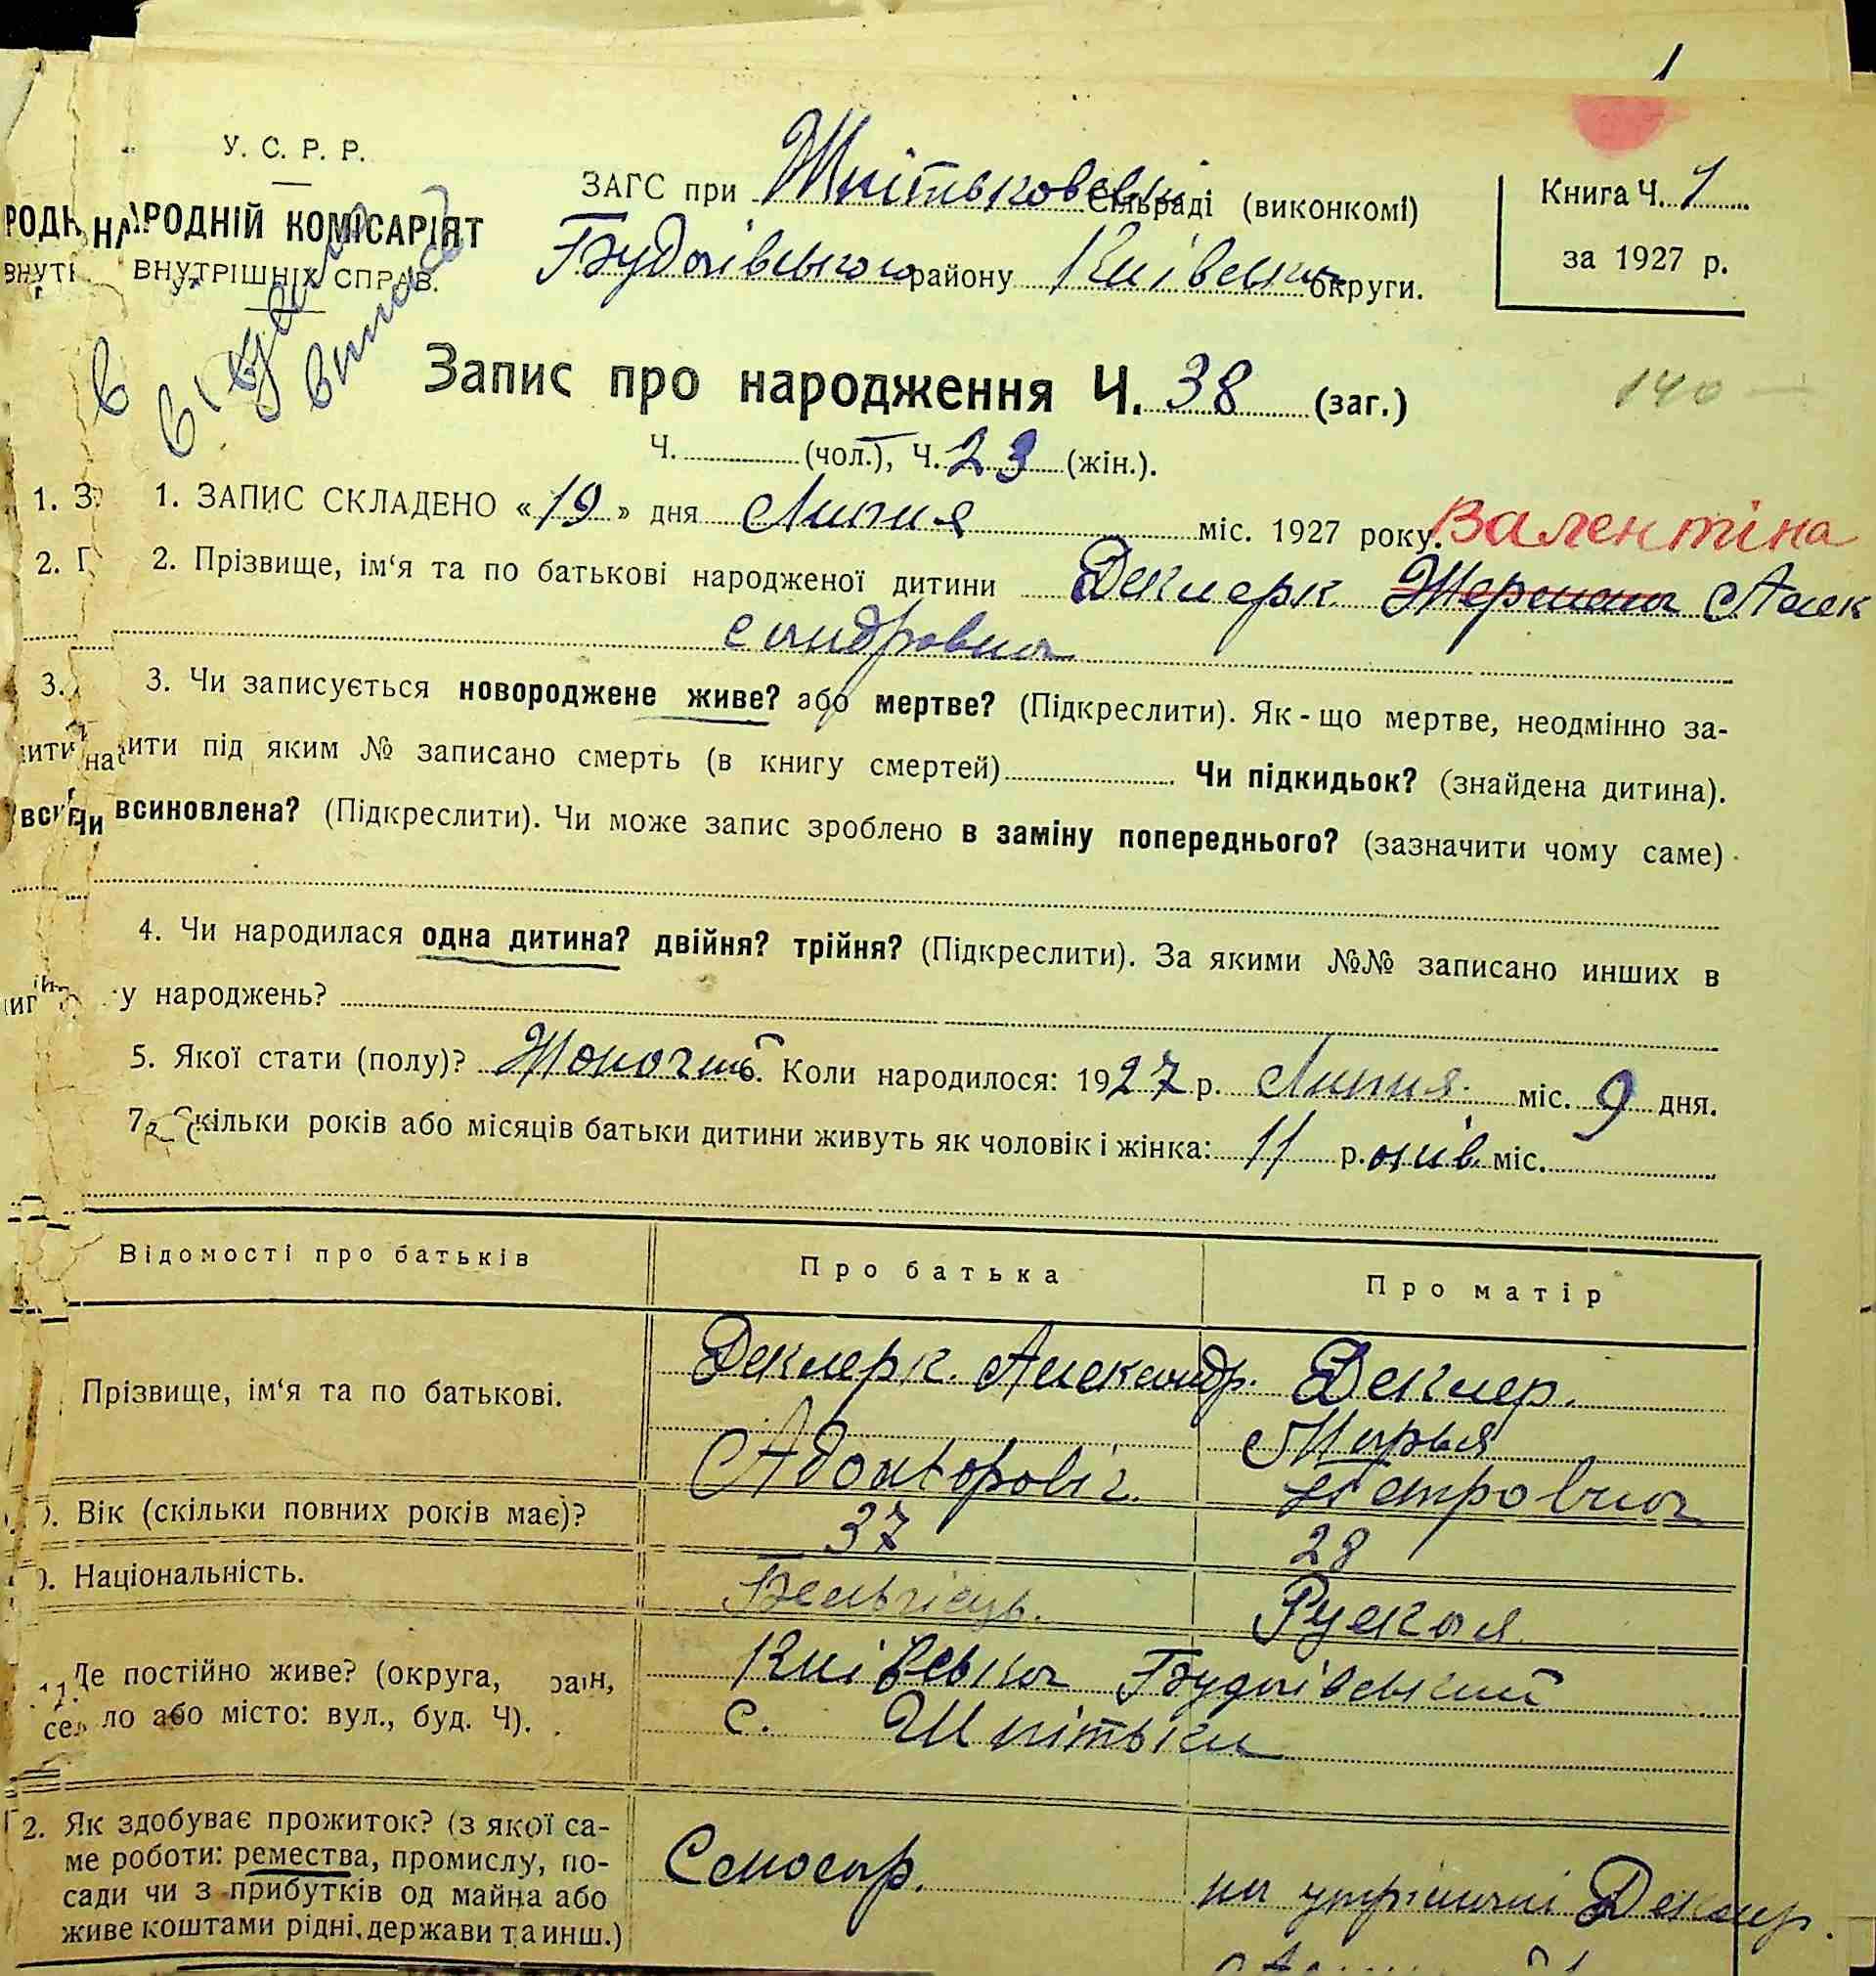 1
У. С. Р. Р.
НАРОДНІЙ КОМІСАРІЯТ
ВНУТРІШНІХ СПРАВ.
ЗАГС при Шпітьковській Сільраді (виконкомі)
Будаівського району Київської округи.
Книга Ч. 1
за 1927 р.
Запис про народження Ч. 38 (заг.)
140
Ч. (чол.), Ч. 23 (жін.).
1. ЗАПИС СКЛАДЕНО «19» дня Липня міс. 1927 року. Валентіна
2. Прізвище, ім‘я та по батькові народженої дитини Деклерк Алек
сандровна
3. Чи записується новороджене живе? або мертве? (Підкреслити). Як-що мертве, неодмінно за-
ити під яким № записано смерть (в книгу смертей) Чи підкидьок? (знайдена дитина).
Чи всиновлена? (Підкреслити). Чи може запис зроблено в заміну попереднього? (зазначити чому саме)
4. Чи народилася одна дитина? двійня? трійня? (Підкреслити). За якими №№ записано инших в
у народжень?
5. Якої стати (полу)? Коли народилося: 1927 р. Липня міс. 9 дня.
7. Скільки років або місяців батьки дитини живуть як чоловік і жінка: 11 р. міс.
Відомості про батьків Про батька Про матір
Прізвище, ім‘я та по батькові. Деклерк Александр. Деклер.
Марья
Петровна
Вік (скільки повних років має)? 37 28
Національність. Бельгієць. Руская
Де постійно живе? (округа, район, Київська Будаівський
село або місто: вул., буд. Ч). с. Шпітьки
12. Як здобуває прожиток? (з якої са-
ме роботи: ремества, промислу, по-
сади чи з прибутків од майна або
живе коштами рідні, держави та инш.)
на утріманні Деклер.